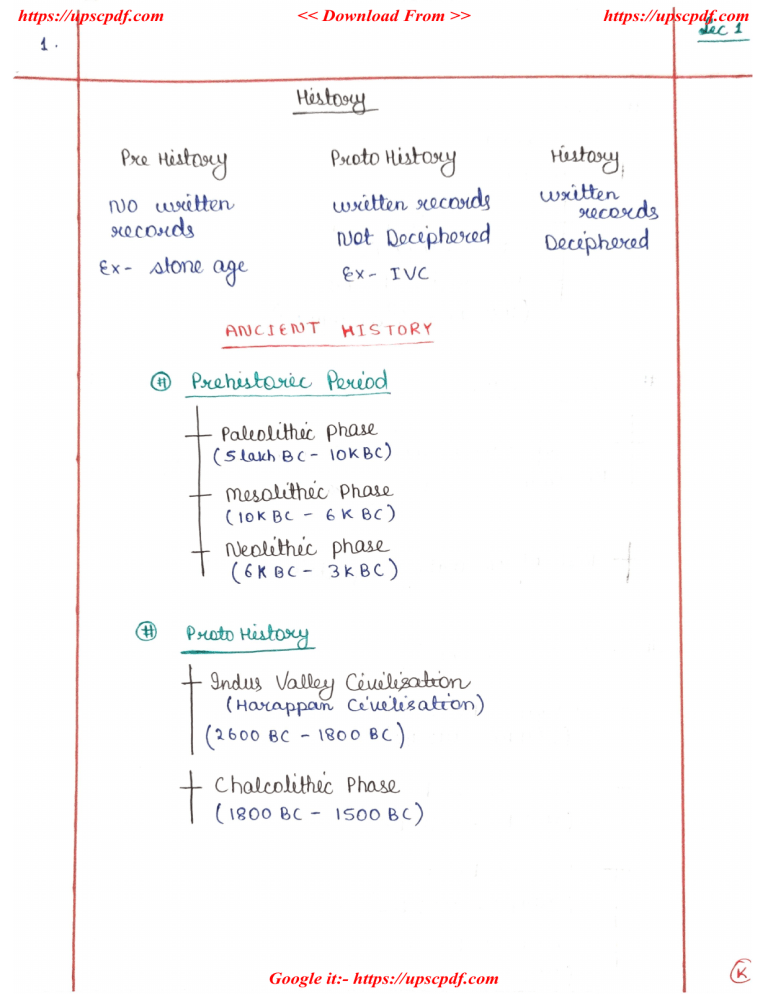 https://upscpdf.com << Download From >> https://upscpdf.com
Lec 1
1.
History
Pre History
No written
records
Ex- stone age
Proto History
written records
Not Deciphered
Ex- IVC
History
written
records
Deciphered
ANCIENT HISTORY
# Prehistoric Period
Paleolithic phase
(5 lakh BC - 10K BC)
Mesolithic Phase
(10K BC - 6K BC)
Neolithic phase
(6K BC - 3K BC)
# Proto History
Indus Valley Civilisation
(Harappan Civilisation)
(2600 BC - 1800 BC)
Chalcolithic Phase
(1800 BC - 1500 BC)
K
Google it:- https://upscpdf.com